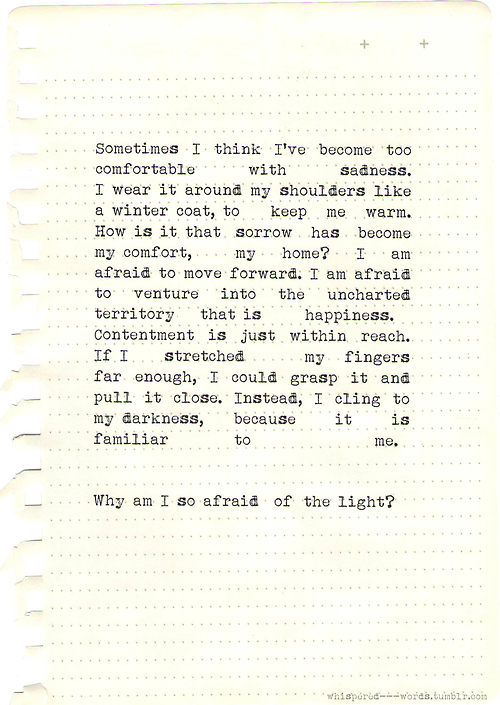 Sometimes I think I've become too
comfortable with sadness.
I wear it around my shoulders like
a winter coat, to keep me warm.
How is it that sorrow has become
my comfort, my home? I am
afraid to move forward. I am afraid
to venture into the uncharted
territory that is happiness.
Contentment is just within reach.
If I stretched my fingers
far enough, I could grasp it and
pull it close. Instead, I cling to
my darkness, because it is
familiar to me.
Why am I so afraid of the light?
whispered---words.tumblr.com